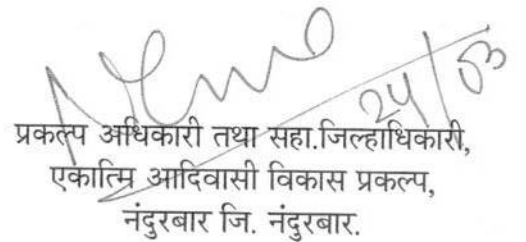 24/03
प्रकल्प अधिकारी तथा सहा.जिल्हाधिकारी,
एकात्मि आदिवासी विकास प्रकल्प,
नंदुरबार जि. नंदुरबार.